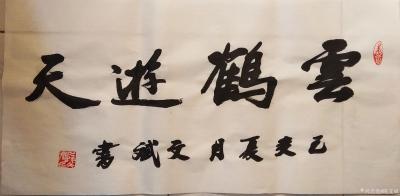 雲鶴遊天
乙亥夏月文斌書